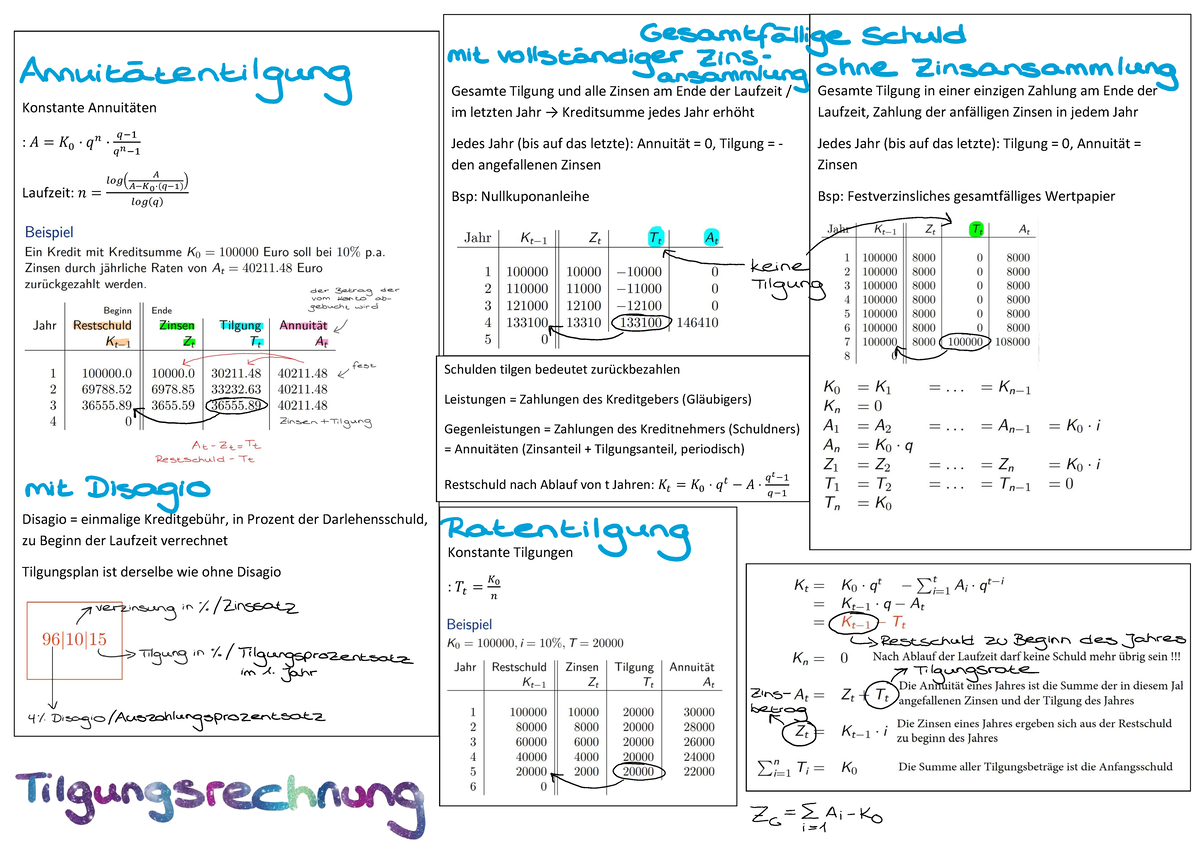 Annuitätentilgung
Konstante Annuitäten
: A = K₀ · qⁿ · (q−1)/(qⁿ−1)
Laufzeit: n = log(A/(A−K₀·(q−1)))/log(q)
Beispiel
Ein Kredit mit Kreditsumme K₀ = 100000 Euro soll bei 10% p.a.
Zinsen durch jährliche Raten von Aₜ = 40211.48 Euro
zurückgezahlt werden.
der Betrag der
vom Konto ab-
gebucht wird
Beginn Ende
Jahr Restschuld Zinsen Tilgung Annuität
Kₜ₋₁ Zₜ Tₜ Aₜ
fest
1 100000.0 10000.0 30211.48 40211.48
2 69788.52 6978.85 33232.63 40211.48
3 36555.89 3655.59 36555.89 40211.48
4 0 Zinsen + Tilgung
Aₜ - Zₜ = Tₜ
Restschuld - Tₜ
mit Disagio
Disagio = einmalige Kreditgebühr, in Prozent der Darlehensschuld,
zu Beginn der Laufzeit verrechnet
Tilgungsplan ist derselbe wie ohne Disagio
Verzinsung in % / Zinssatz
96|10|15
Tilgung in % / Tilgungsprozentsatz
im 1. Jahr
4% Disagio / Auszahlungsprozentsatz
Tilgungsrechnung
Gesamtfällige Schuld
mit vollständiger Zins-
ansammlung
Gesamte Tilgung und alle Zinsen am Ende der Laufzeit /
im letzten Jahr → Kreditsumme jedes Jahr erhöht
Jedes Jahr (bis auf das letzte): Annuität = 0, Tilgung = -
den angefallenen Zinsen
Bsp: Nullkuponanleihe
Jahr Kₜ₋₁ Zₜ Tₜ Aₜ
1 100000 10000 −10000 0
2 110000 11000 −11000 0
3 121000 12100 −12100 0
4 133100 13310 133100 146410
5 0
keine
Tilgung
ohne Zinsansammlung
Gesamte Tilgung in einer einzigen Zahlung am Ende der
Laufzeit, Zahlung der anfälligen Zinsen in jedem Jahr
Jedes Jahr (bis auf das letzte): Tilgung = 0, Annuität =
Zinsen
Bsp: Festverzinsliches gesamtfälliges Wertpapier
Jahr Kₜ₋₁ Zₜ Tₜ Aₜ
1 100000 8000 0 8000
2 100000 8000 0 8000
3 100000 8000 0 8000
4 100000 8000 0 8000
5 100000 8000 0 8000
6 100000 8000 0 8000
7 100000 8000 100000 108000
8 0
K₀ = K₁ = ... = Kₙ₋₁
Kₙ = 0
A₁ = A₂ = ... = Aₙ₋₁ = K₀ · i
Aₙ = K₀ · q
Z₁ = Z₂ = ... = Zₙ = K₀ · i
T₁ = T₂ = ... = Tₙ₋₁ = 0
Tₙ = K₀
Schulden tilgen bedeutet zurückbezahlen
Leistungen = Zahlungen des Kreditgebers (Gläubigers)
Gegenleistungen = Zahlungen des Kreditnehmers (Schuldners)
= Annuitäten (Zinsanteil + Tilgungsanteil, periodisch)
Restschuld nach Ablauf von t Jahren: Kₜ = K₀ · qᵗ − A · (qᵗ−1)/(q−1)
Ratentilgung
Konstante Tilgungen
: Tₜ = K₀/n
Beispiel
K₀ = 100000, i = 10%, T = 20000
Jahr Restschuld Zinsen Tilgung Annuität
Kₜ₋₁ Zₜ Tₜ Aₜ
1 100000 10000 20000 30000
2 80000 8000 20000 28000
3 60000 6000 20000 26000
4 40000 4000 20000 24000
5 20000 2000 20000 22000
6 0
Kₜ = K₀ · qᵗ − ∑ᵗᵢ₌₁ Aᵢ · qᵗ⁻ⁱ
= Kₜ₋₁ · q − Aₜ
= Kₜ₋₁ − Tₜ
Restschuld zu Beginn des Jahres
Kₙ = 0 Nach Ablauf der Laufzeit darf keine Schuld mehr übrig sein !!!
Tilgungsrate
Aₜ = Zₜ + Tₜ Die Annuität eines Jahres ist die Summe der in diesem Jal
angefallenen Zinsen und der Tilgung des Jahres
Zins-
betrag
Zₜ = Kₜ₋₁ · i Die Zinsen eines Jahres ergeben sich aus der Restschuld
zu beginn des Jahres
∑ⁿᵢ₌₁ Tᵢ = K₀ Die Summe aller Tilgungsbeträge ist die Anfangsschuld
Z_G = ∑ᵢ₌₁ Aᵢ − K₀